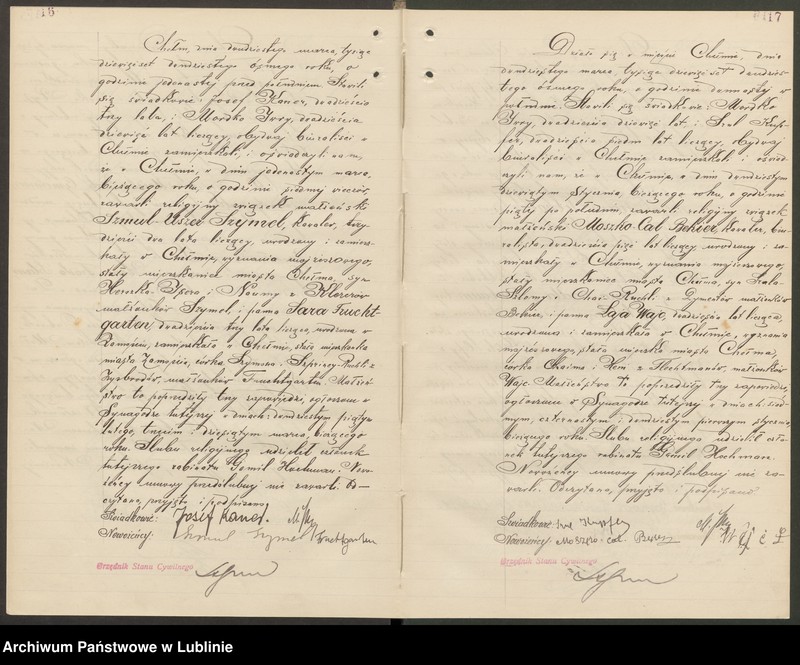 16
Chełm, dnia dwudziestego marca, tysiąc
dziewięćset dwudziestego ósmego roku, o
godzinie jedenastej przed południem. Stawili
się świadkowie: Josef Kaner, dwadzieścia
trzy lata, i Mordko Jory, dwadzieścia
dziewięć lat liczący, obydwaj biuraliści w
Chełmie zamieszkali, i oświadczyli nam,
że w Chełmie, w dniu jedenastym marca
bieżącego roku, o godzinie siódmej wieczór,
zawarli religijny związek małżeński
Szmul-Uszer Szymel, kawaler, trzy-
dzieści dwa lata liczący, urodzony i zamiesz-
kały w Chełmie, wyznania mojżeszowego,
stały mieszkaniec miasta Chełma, syn
małżonków Szymel, i panna Sara Frucht-
garten, dwadzieścia trzy lata licząca, urodzona w
Zamościu, zamieszkała w Chełmie, stała mieszkanka
miasta Zamościa, córka
małżonków Fruchtgarten. Małżeń-
stwo to poprzedziły trzy zapowiedzi, ogłoszone w
Synagodze tutejszej w dniach: dwudziestym piątym
lutego, trzecim i dziesiątym marca, bieżącego
roku. Ślubu religijnego udzielił członek
tutejszego rabinatu Gemil Hochman. Nowo-
żeńcy umowy przedślubnej nie zawarli. Od-
czytano, przyjęto i podpisano
Świadkowie: Josef Kaner.
Nowożeńcy: Szmul Szymel Fruchtgarten
Urzędnik Stanu Cywilnego
17
Działo się w mieście Chełmie, dnia
dwudziestego marca, tysiąc dziewięćset dwudzies-
tego ósmego roku, o godzinie dwunastej w
południe. Stawili się świadkowie: Mordko
Jory, dwadzieścia dziewięć lat, i Srul Kup-
fer, dwadzieścia siedm lat liczący, obydwaj
biuraliści w Chełmie zamieszkali i oświad-
czyli nam, że w Chełmie, w dniu dwudziestym
dziewiątym stycznia, bieżącego roku, o godzinie
piątej po południu, zawarli religijny związek
małżeński Moszko-Cal Bekier, kawaler, biu-
ralista, dwadzieścia pięć lat liczący, urodzony i za-
mieszkały w Chełmie, wyznania mojżeszowego,
stały mieszkaniec miasta Chełma, syn
małżonków
Bekier, i panna Łaja Wajc, dwadzieścia lat licząca,
urodzona i zamieszkała w Chełmie, wyznania
mojżeszowego, stała mieszkanka miasta Chełma,
córka Chaima i małżonków
Wajc. Małżeństwo to poprzedziły trzy zapowiedzi,
ogłoszone w Synagodze tutejszej w dniach: siód-
mym, czternastym i dwudziestym pierwszym stycznia,
bieżącego roku. Ślubu religijnego udzielił czło-
nek tutejszego rabinatu Gemil Hochman.
Nowożeńcy umowy przedślubnej nie za-
warli. Odczytano, przyjęto i podpisano
Świadkowie: Srul Kupfer
Nowożeńcy: Moszko-Cal
Urzędnik Stanu Cywilnego
Archiwum Państwowe w Lublinie